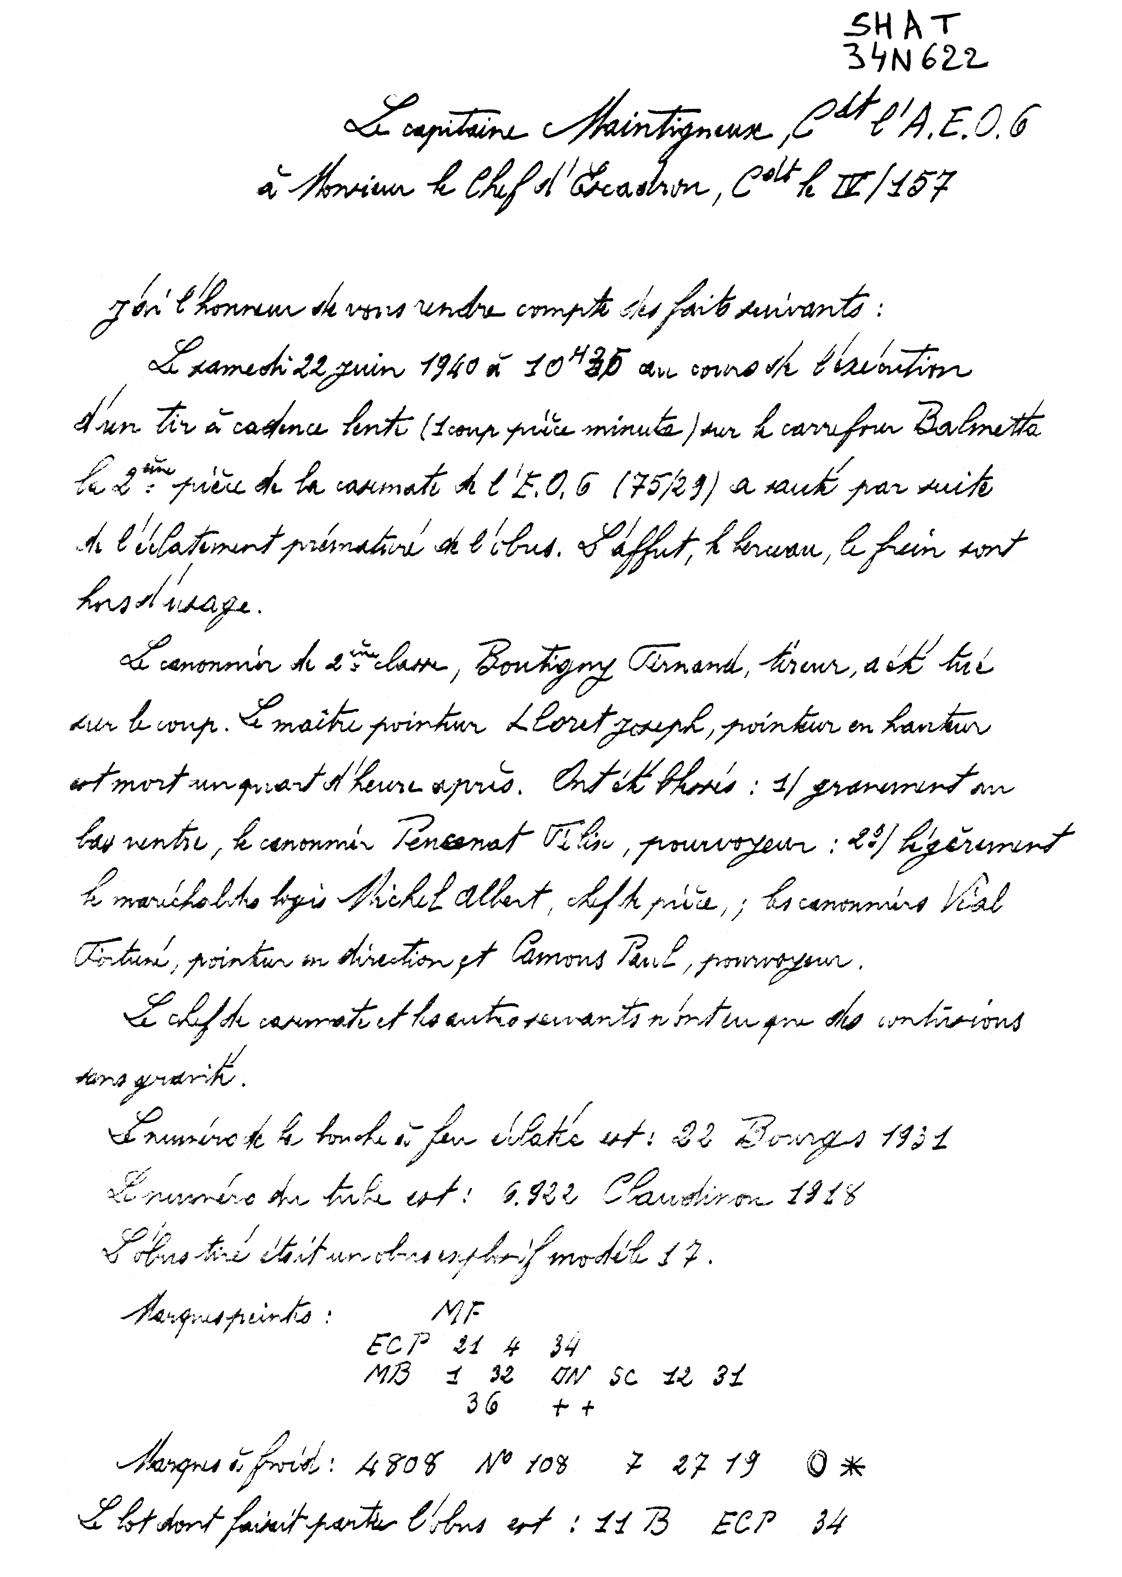 SHAT
34N622
Le capitaine Maintigneux, Cdt l'A.E.O.6
à Monsieur le Chef d'Escadron, Cdt le IV/157
J'ai l'honneur de vous rendre compte des faits suivants :
Le samedi 22 juin 1940 à 10H35 au cours de l'éxécution
d'un tir à cadence lente (1 coup pièce minute) sur le carrefour Balmetta
la 2ème pièce de la casemate de l'E.O.6 (75/29) a sauté par suite
de l'éclatement prématuré de l'obus. L'affut, le berceau, le frein sont
hors d'usage.
Le canonnier de 2ème classe, Boutigny Fernand, tireur, a été tué
sur le coup. Le maître pointeur Lloret Joseph, pointeur en hauteur
est mort un quart d'heure après. Ont été blessés : 1/ gravement au
bas ventre, le canonnier Pencenat Félix, pourvoyeur : 2º/ légèrement
le maréchal des logis Michel Albert, chef de pièce, ; les canonniers Vial
Fortuné, pointeur en direction et Camous Paul, pourvoyeur.
Le chef de casemate et les autres servants n'ont eu que des contusions
sans gravité.
Le numéro de la bouche à feu éclatée est : 22 Bourges 1931
Le numéro du tube est : 6.922 Claudinon 1918
L'obus tiré était un obus explosif modèle 17.
Marques peintes : MF
ECP 21 4 34
MB 1 32 ON SC 12 31
36 + +
Marques à froid : 4808 Nº 108 7 27 19 O *
Le lot dont faisait partie l'obus est : 11 B ECP 34